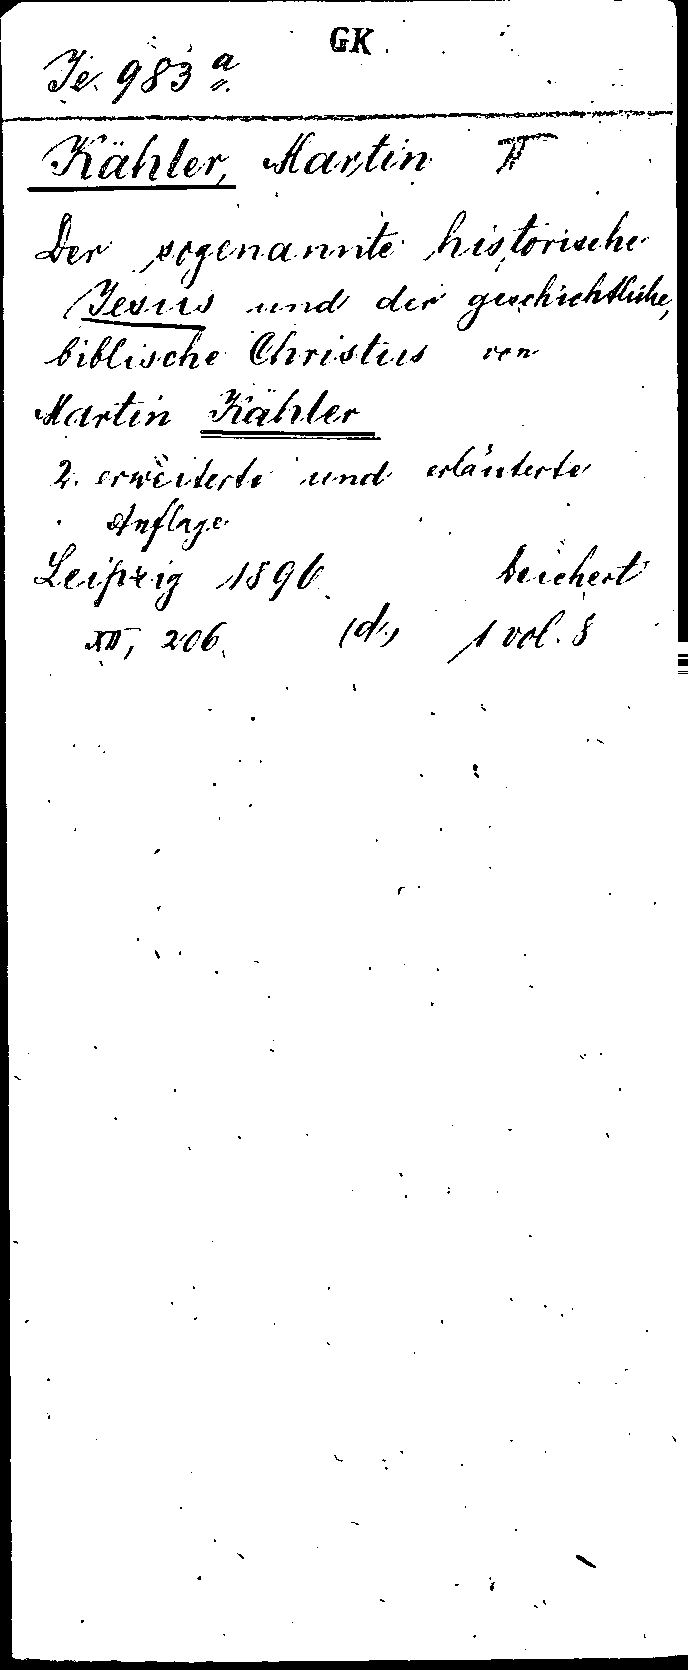 GK
Je. 983 a
Kähler, Martin II
Der sogenannte historische
Jesus und der geschichtliche,
biblische Christus von
Martin Kähler
2. erweiterte und erläuterte
Auflage
Leipzig 1896. Deichert
XII, 206. (d.) 1 vol. 8